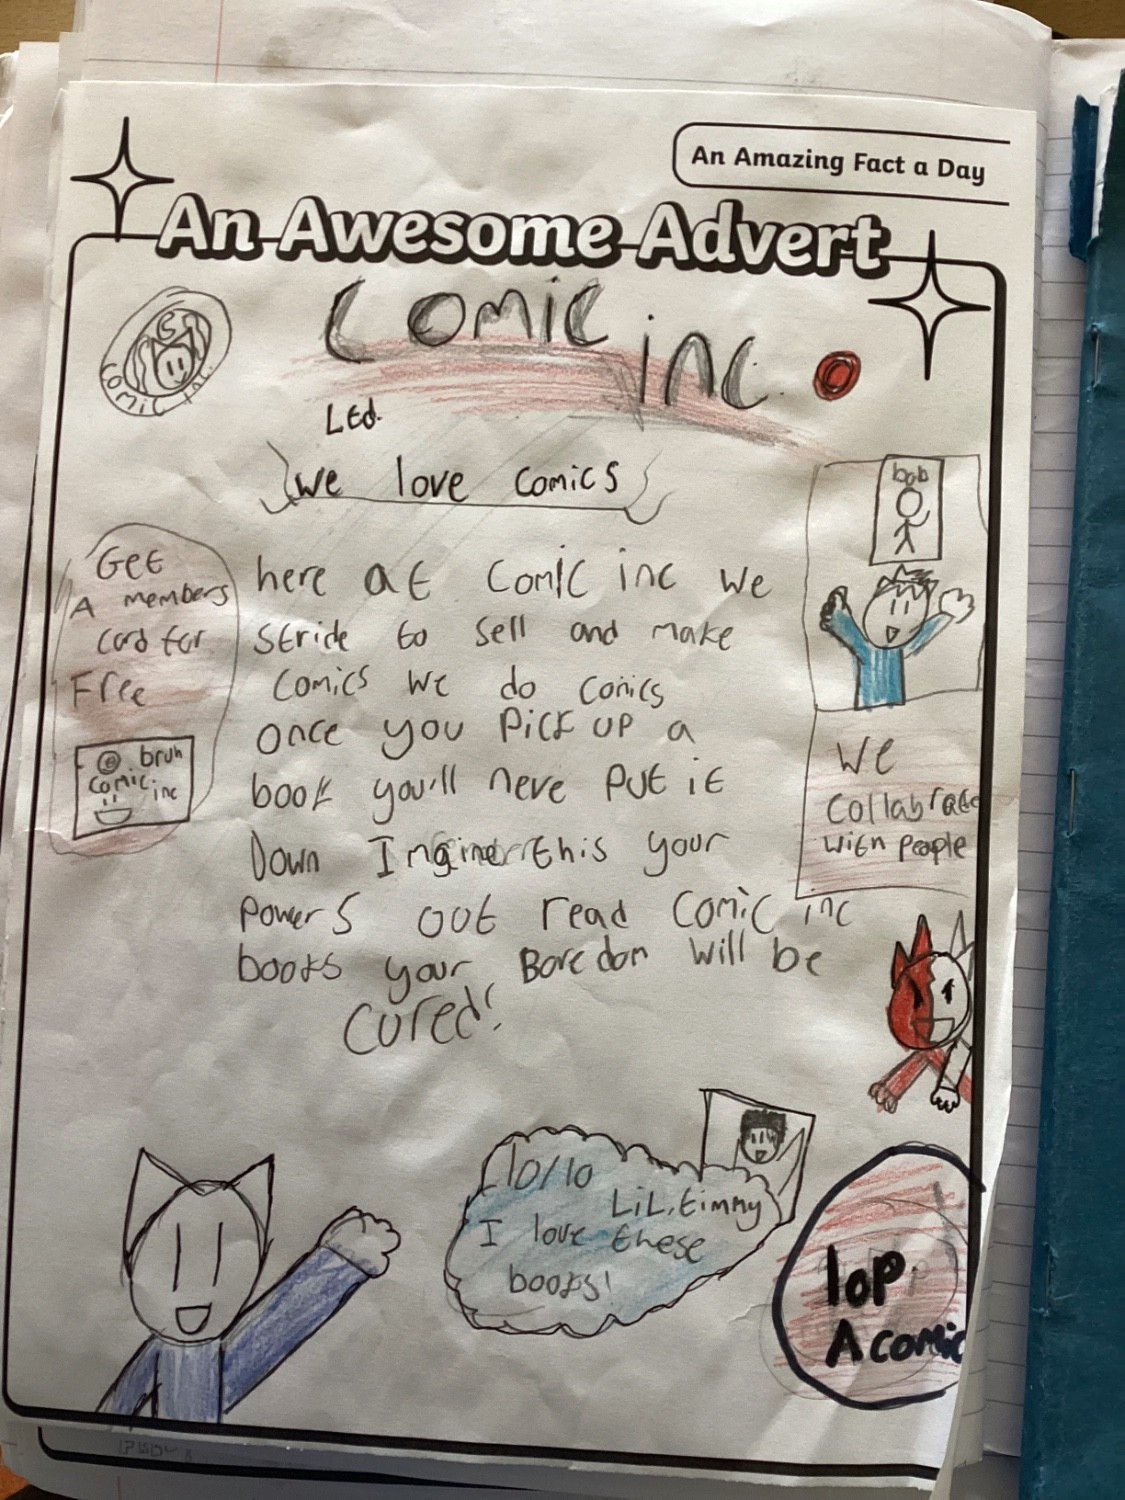 An Amazing Fact a Day
An Awesome Advert
comic inc.
comic inc.
Ltd.
we love comics
Get
A members
card for
Free
bruh
comic
inc
here at comic inc we
stride to sell and make
comics we do comics
once you pick up a
book you'll neve put it
Down Imagine this your
powers out read comic inc
books your Boredom will be
cured!
bob
we
collabrate
with people
10/10
LiL.timmy
I love these
books!
10P
A comic